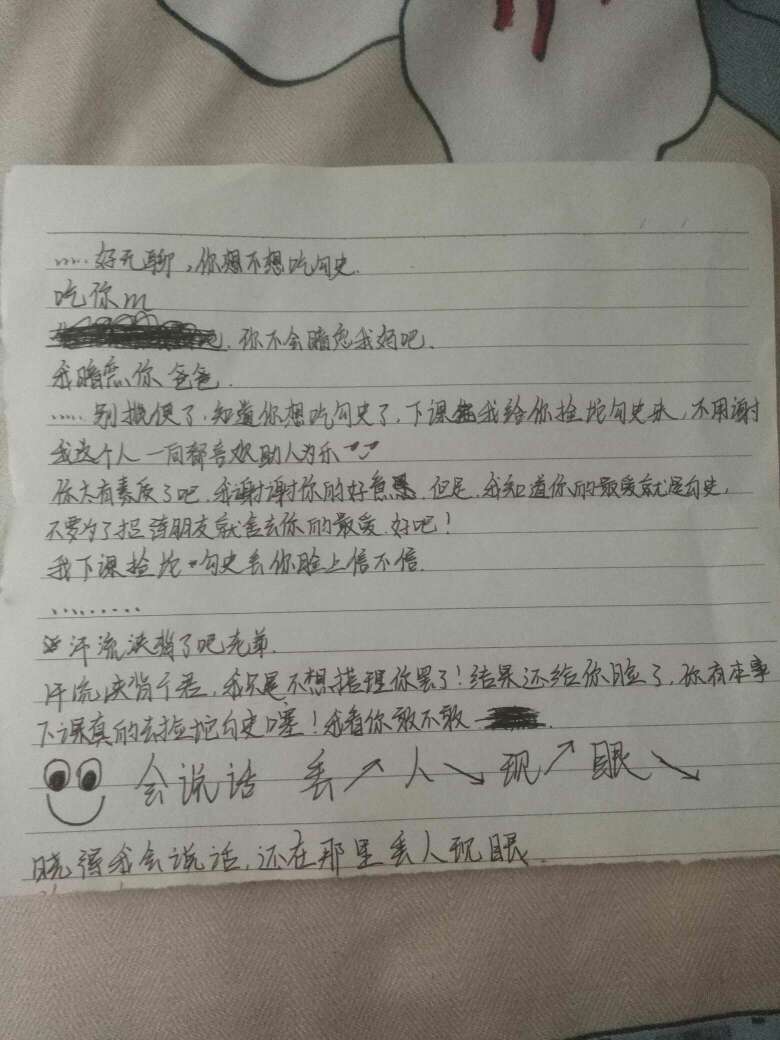 ……好无聊,你想不想吃勾史.
吃你m
你不会暗恋我好吧.
我暗恋你爸爸.
……别拟便了.知道你想吃勾史了,下课我给你捡坨勾史来,不用谢
我这个人一向都喜欢助人为乐
你太有素质了吧.我谢谢你的好意.但是.我知道你的最爱就是勾史,
不要为了招待朋友就舍去你的最爱.好吧!
我下课捡坨勾史丢你脸上信不信.
………
汗流浃背了吧老弟.
汗流浃背个若,我只是不想搭理你罢了!结果还给你脸了,你有本事
下课真的去捡坨勾史噻!我看你敢不敢
会说话 丢↗人↘现↗眼↘
晓得我会说话,还在那里丢人现眼.